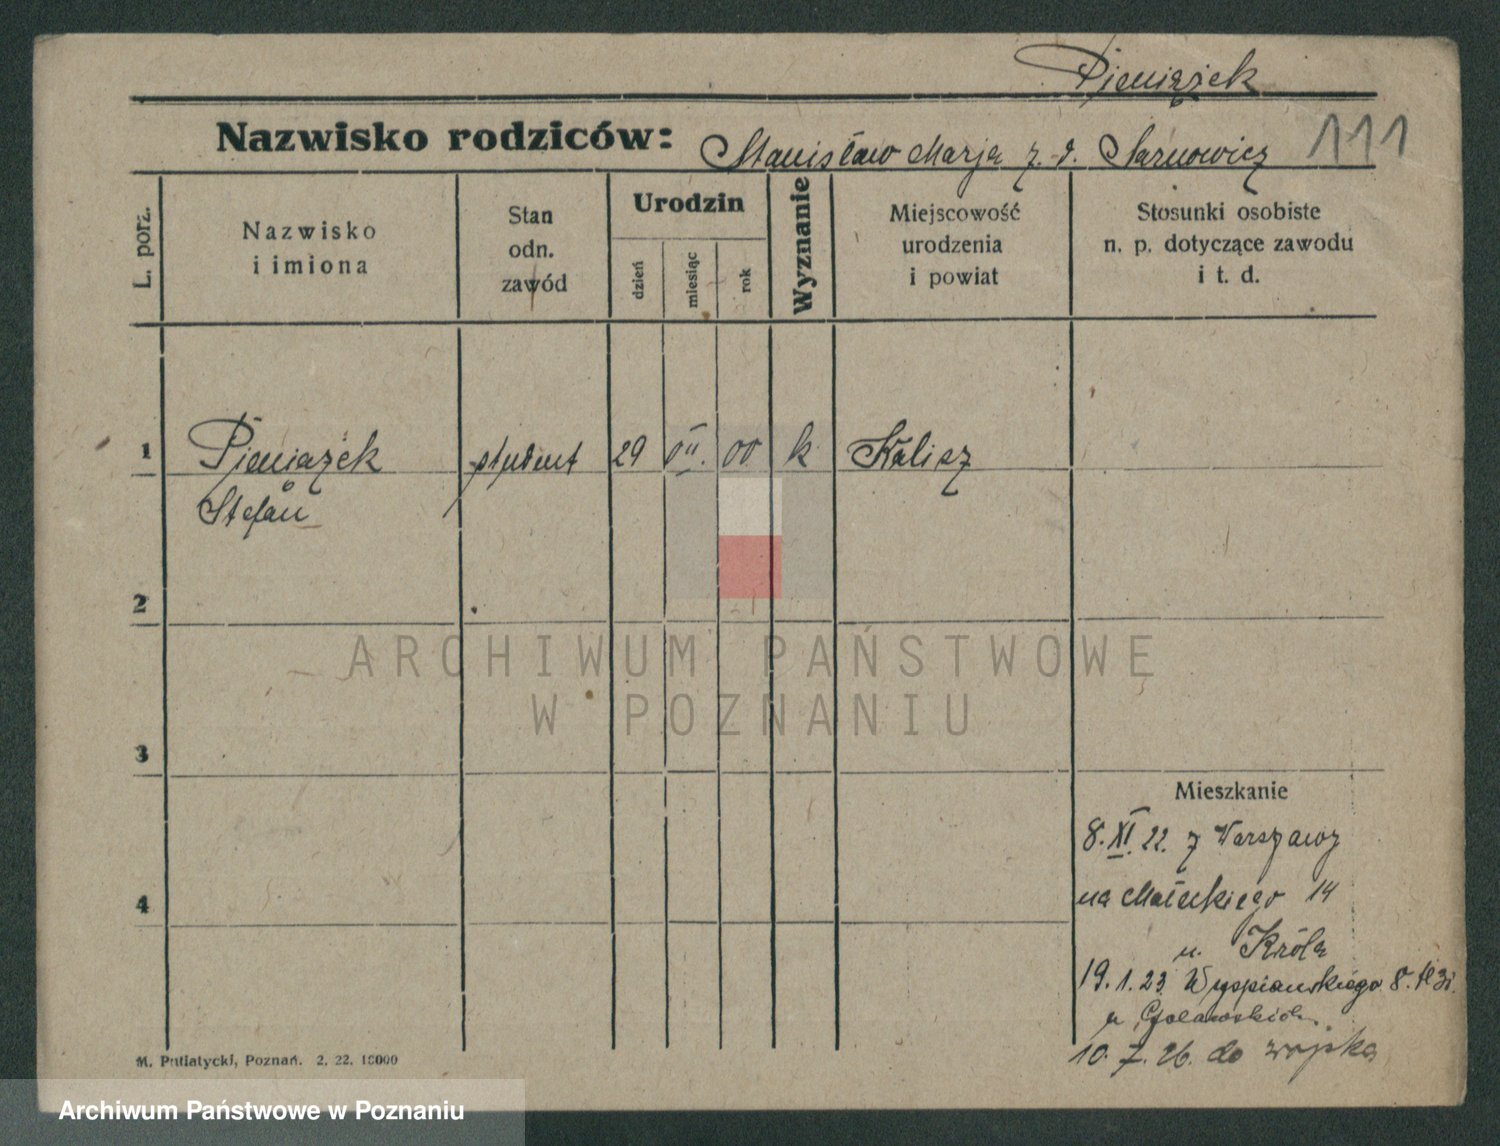 Pieniążek
Nazwisko rodziców: Stanisław Marja z. d. Sarnowicz 111
L. porz.
Nazwisko
i imiona
Stan
odn.
zawód
Urodzin
dzień
miesiąc
rok
Wyznanie
Miejscowość
urodzenia
i powiat
Stosunki osobiste
n. p. dotyczące zawodu
i t. d.
1 Pieniążek student 29 00 k Kalisz
Stefan
2
ARCHIWUM PAŃSTWOWE
W POZNANIU
3
Mieszkanie
8. XI. 22. z Warszawy
4
na Małeckiego 14
u. Króla
19. 1. 23 Wyspiańskiego 8.
u
10. 7. 26. do wojska
M. Putiatycki, Poznań. 2. 22. 18000
Archiwum Państwowe w Poznaniu